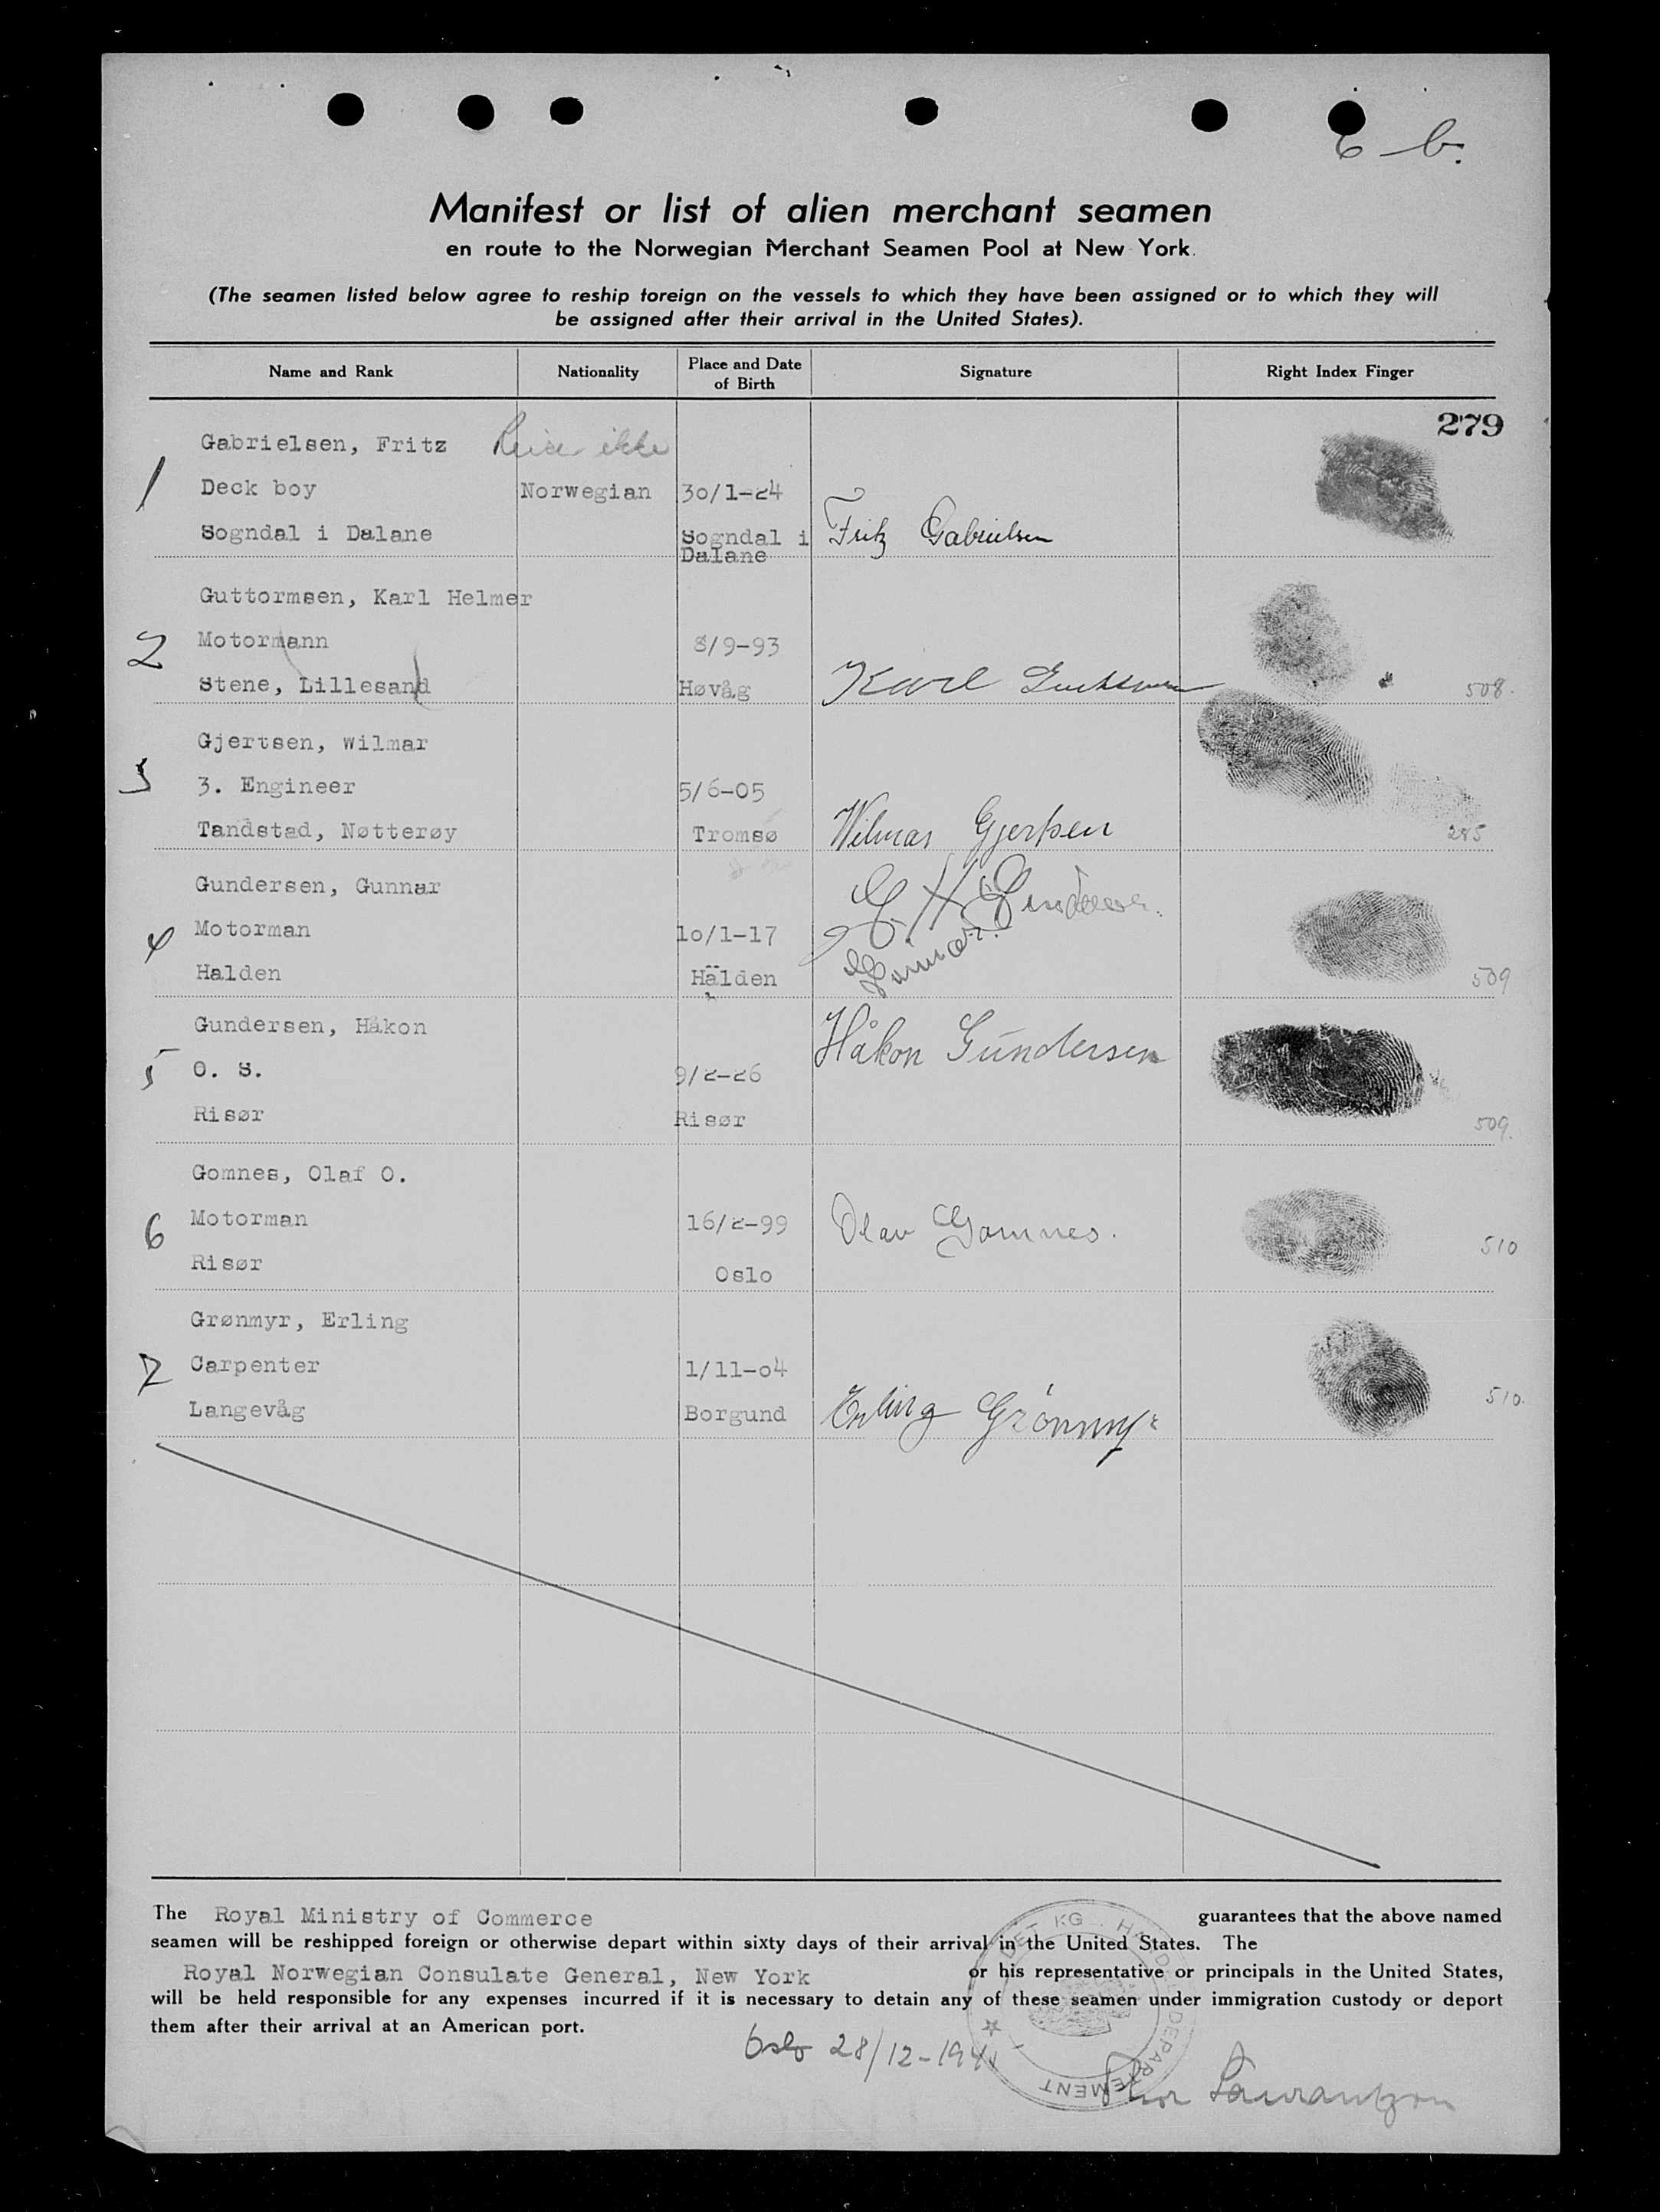 6 b.
Manifest or list of alien merchant seamen
en route to the Norwegian Merchant Seamen Pool at New York.
(The seamen listed below agree to reship foreign on the vessels to which they have been assigned or to which they will
be assigned after their arrival in the United States).
Name and Rank Nationality Place and Date of Birth Signature Right Index Finger
279
Gabrielsen, Fritz Reise ikke
1 Deck boy Norwegian 30/1-24
Sogndal i Dalane Sogndal i Fritz Gabrielsen
Dalane
Guttormsen, Karl Helmer
2 Motormann 8/9-93
Stene, Lillesand Høvåg Karl 508.
Gjertsen, Wilmar
3 3. Engineer 5/6-05
Tandstad, Nøtterøy Tromsø Wilmar Gjertsen 285
Gundersen, Gunnar G. H. Gundersen
4 Motorman 10/1-17 Gunnar
Halden Halden 509
Gundersen, Håkon Håkon Gundersen
5 O. S. 9/2-26
Risør Risør 509.
Gomnes, Olaf O.
6 Motorman 16/2-99 Olav Gomnes.
Risør Oslo 510
Grønmyr, Erling
7 Carpenter 1/11-04 510.
Langevåg Borgund Erling Grönmyr
The Royal Ministry of Commerce guarantees that the above named
seamen will be reshipped foreign or otherwise depart within sixty days of their arrival in the United States. The
Royal Norwegian Consulate General, New York or his representative or principals in the United States,
will be held responsible for any expenses incurred if it is necessary to detain any of these seamen under immigration custody or deport
them after their arrival at an American port.
DET KG. DEPARTEMENT
Oslo 28/12-194